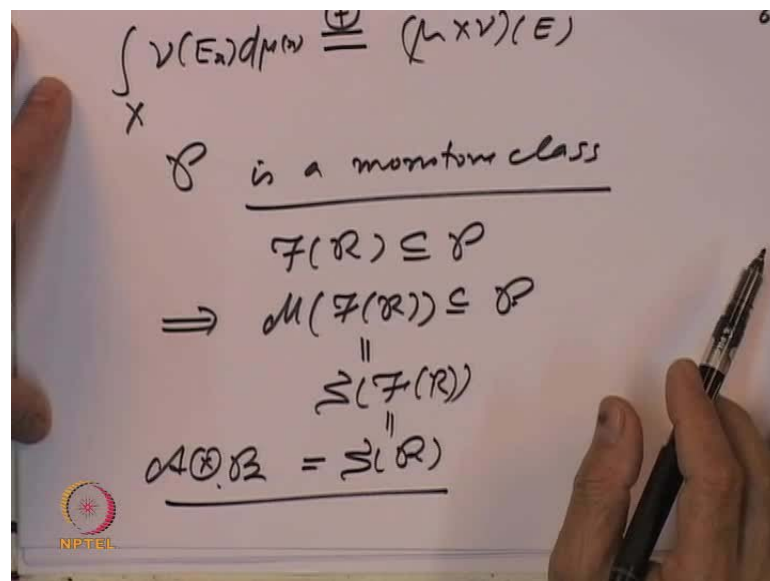 ∫_X ν(E_x)dμ(x) ⊕= (μ×ν)(E)
𝒫 is a monotone class
ℱ(ℛ) ⊆ 𝒫
⟹ ℳ(ℱ(ℛ)) ⊆ 𝒫
||
𝒮(ℱ(ℛ))
||
𝒜⊗ℬ = 𝒮(ℛ)
NPTEL